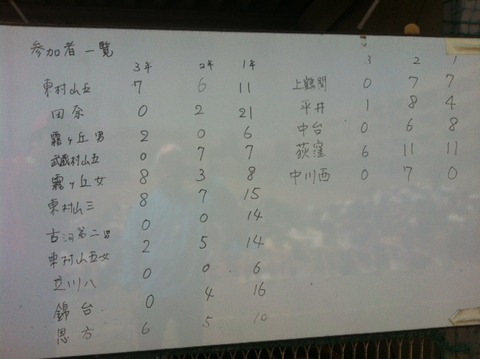 参加者一覧
3年 2年 1年
東村山五 7 6 11
田奈 0 2 21
霧ヶ丘男 2 0 6
武蔵村山五 0 7 7
霧ヶ丘女 8 3 8
東村山三 8 7 15
古河第二男 0 0 14
東村山五女 2 5 14
立川八 0 0 6
錦台 0 4 16
恩方 6 5 10
3 2 1
上鶴間 0 7 7
平井 1 8 4
中台 0 6 8
荻窪 6 11 11
中川西 0 7 0